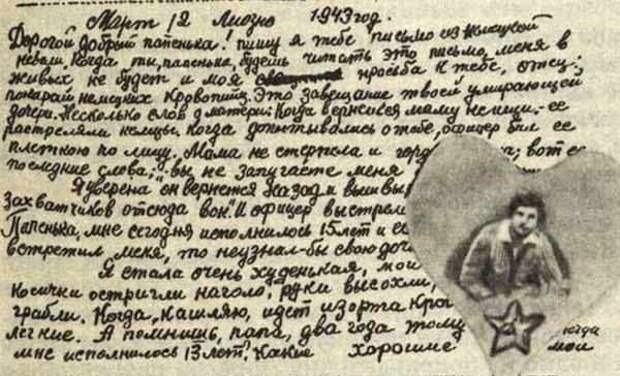 Март 12 Лиозно 1943 год.
Дорогой добрый папенька! пишу я тебе письмо из немецкой
неволи. Когда ты, папенька, будешь читать это письмо, меня в
живых не будет и моя просьба к тебе, отец:
покарай немецких кровопийц. Это завещание твоей умирающей
дочери. Несколько слов о матери. Когда вернешься маму не ищи - ее
расстреляли немцы. Когда допытывались о тебе, офицер бил ее
плеткою по лицу. Мама не стерпела и вот ее
последние слова: "вы не запугаете меня
Я уверена он вернется назад и вышвы
захватчиков отсюда вон." И офицер выстрел
Папенька, мне сегодня исполнилось 15 лет и ес
встретил меня, то неузнал-бы свою доч
Я стала очень худенькая, мои
Косички остригли наголо, руки высохли,
грабли. Когда, кашляю, идет изорта кро
легкие. А помнишь, папа, два года тому когда
мне исполнилось 13 лет? Какие хорошие мои